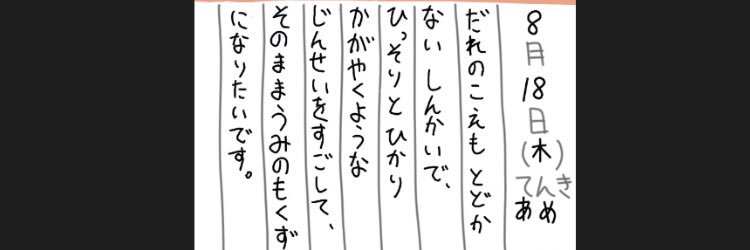 8月18日(木)
てんき
あめ
だれのこえも とどか
ない しんかいで、
ひっそりと ひかり
かがやくような
じんせいをすごして、
そのままうみのもくず
になりたいです。